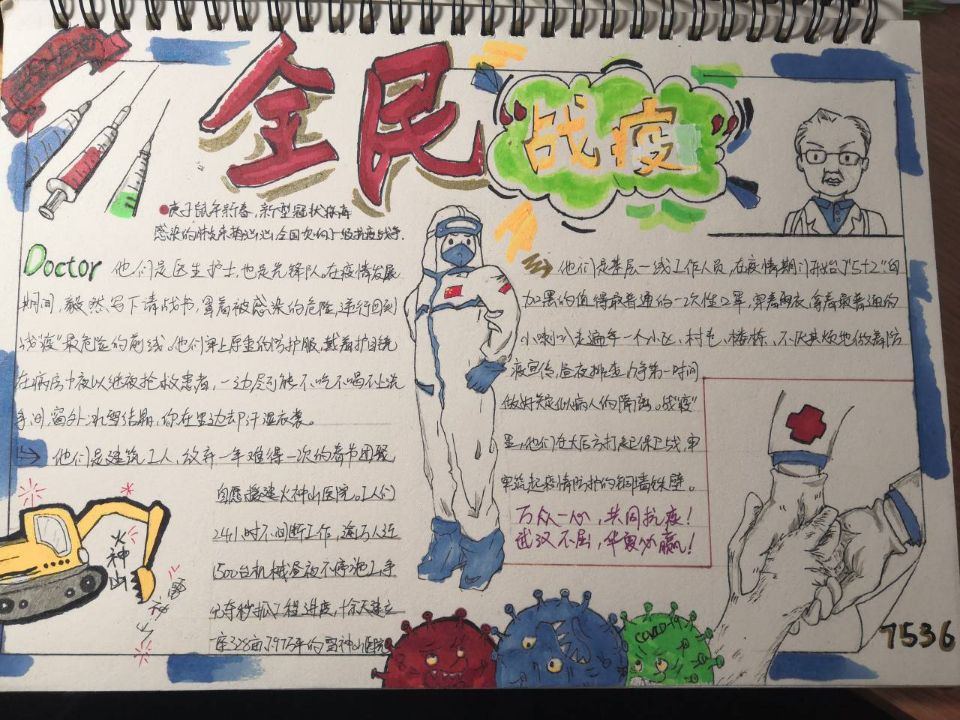 全民
"战疫"
庚子鼠年新春，新型冠状病毒
感染的肺炎来势汹汹，全国
Doctor 他们是医生护士，也是先锋队，在疫情发展
期间，毅然写下请战书，冒着被感染的危险，逆行回到
战"疫"最危险的前线。他们穿上厚重的防护服，戴着护目镜
在病房中夜以继夜抢救患者，一边尽可能不吃不喝不上洗
手间，窗外冰雪结期，你在里边却汗湿衣裳。
他们是建筑工人，放弃一年难得一次的春节团聚
自愿援建火神山医院。工人们
24小时不间断工作，逾万人连
1500台机械昼夜不停施工，争
分夺秒抓工程进度，十余天建立
一座328亩，7.97万平的雷神山医院
火神山
雷神山
他们是基层一线工作人员，在疫情期间开始了"5+2"的
加黑的值得最普通的一次性口罩，穿着朝衣，拿着最普通的
小喇叭走遍每一个小区，村屯，楼栋，不厌其烦地做着防
疫宣传，昼夜排查，力争第一时间
做好疑似病人的隔离。战"疫"
里，他们在大后方打起保卫战，牢
牢筑起疫情防护的铜墙铁壁。
万众一心，共同抗疫！
武汉不屈，华夏必赢！
COVID-19
7536